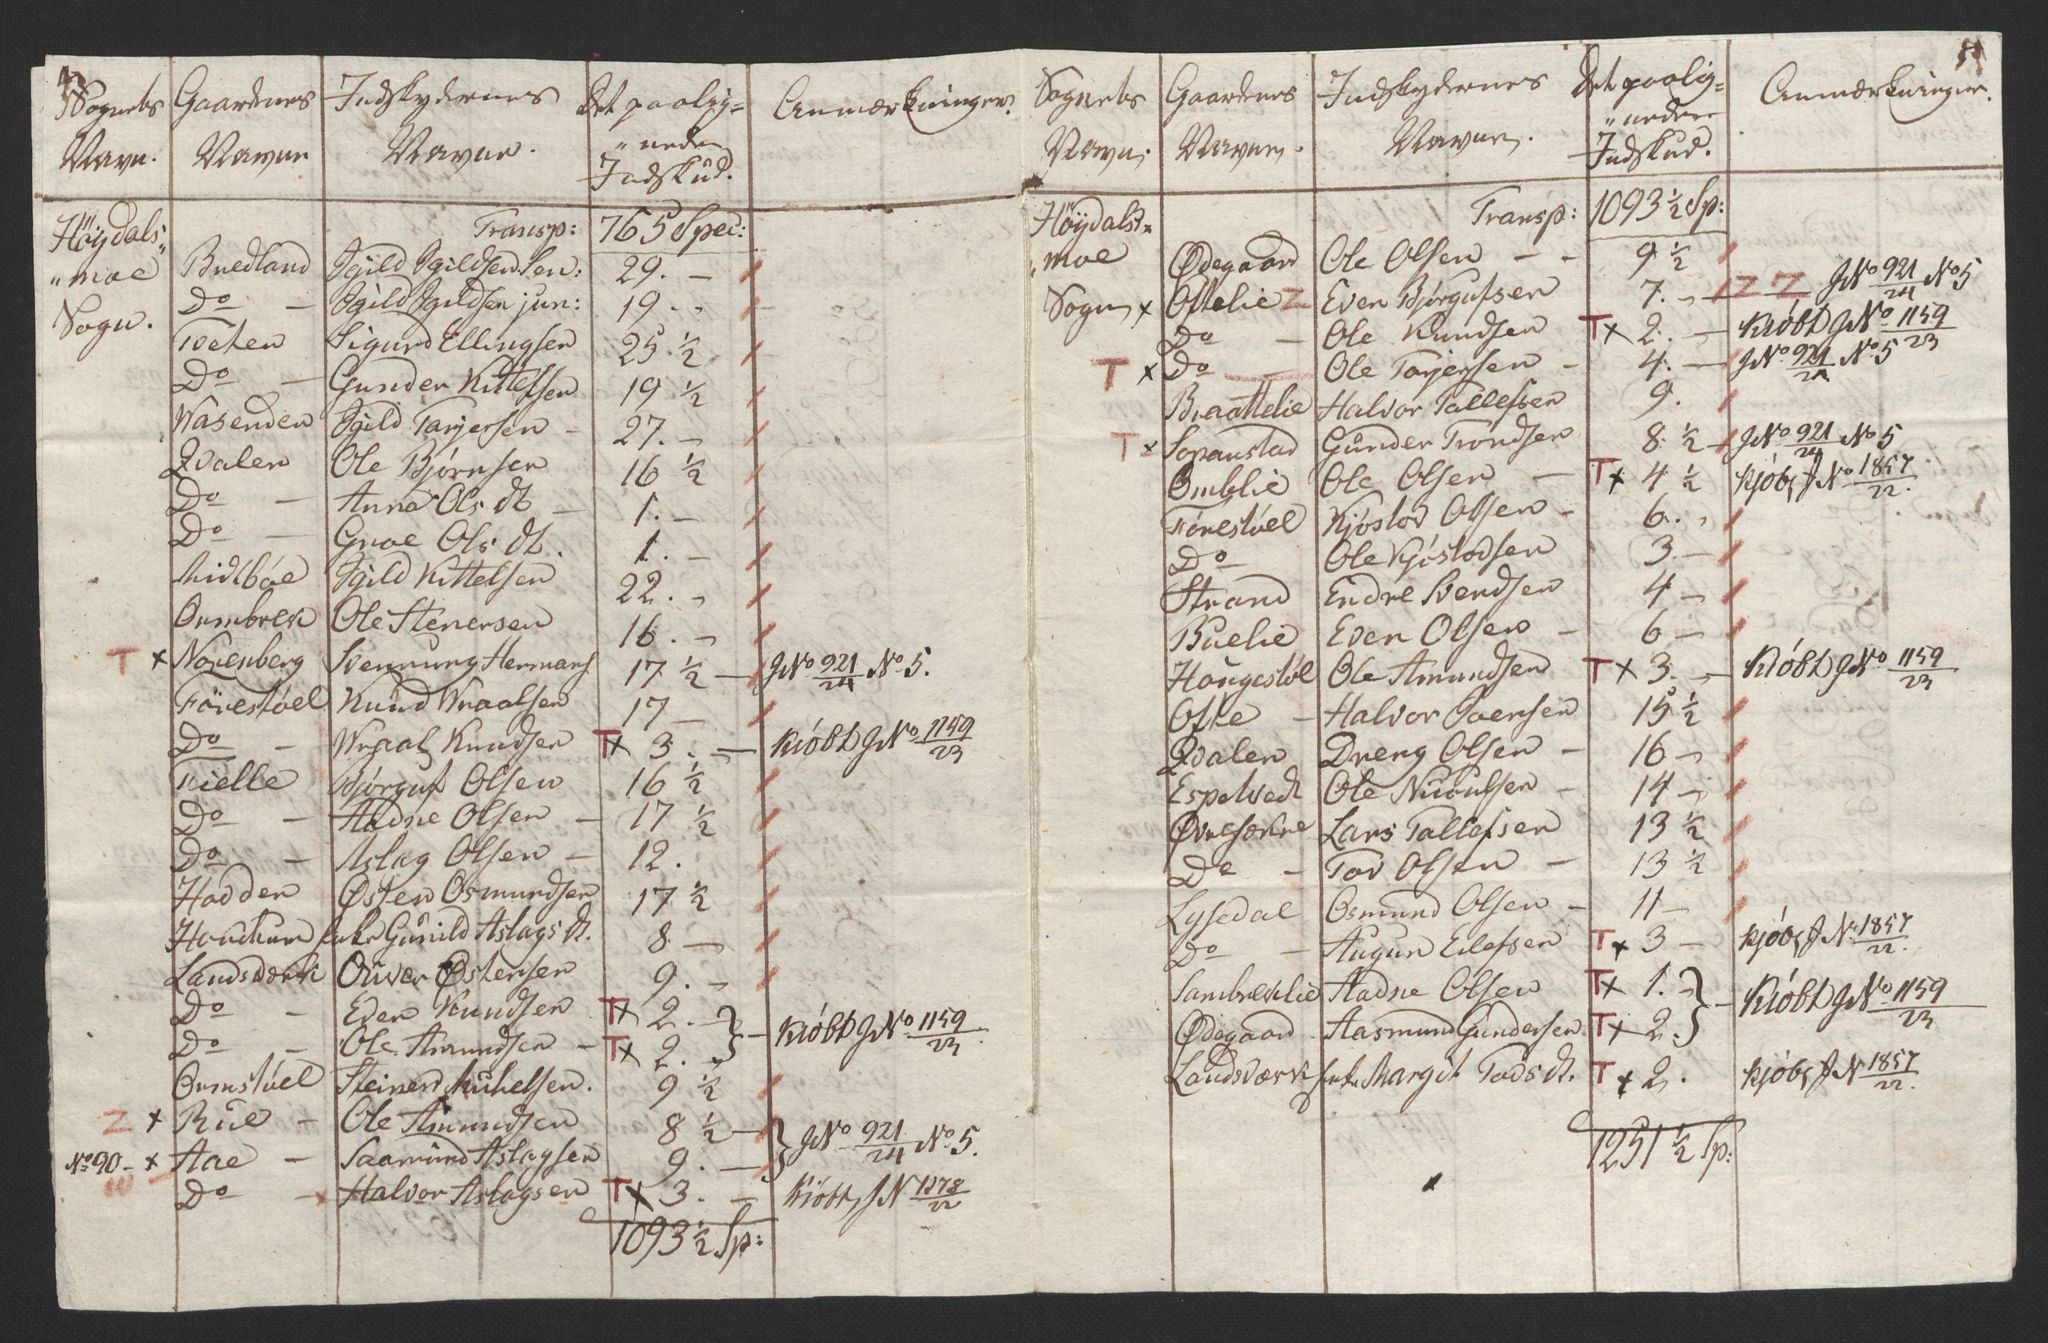 Sognets Navn. | Gaardenes Navne | Indskydernes Navne. | Det paalig„nede Indskud. | Anmærkninger.
Höydals„ | | Transp: | 765 Spec:
„moe | Bredland | Igild Igildsen Sen: | 29. –
Sogn. | Do – | Igild Igildsen jun: | 19. „
Tveten | Sigurd Ellingsen | 25 ½
Do – | Gunder Kittelsen | 19 ½
Wasenden | Igild Tarjersen – | 27. –
Qvalen | Ole Bjørnsen | 16 ½
Do – | Anne Ols Dt – | 1. –
Do – | Groe Ols Dt. | 1. –
Midtbøe | Igild Kittelsen | 22. „
Ormbrek | Ole Stenersen | 16. „
T × Norenberg | Svennung Hermans | 17 ½ – | JNo 921/24 No 5.
Förestøel | Knud Wraalsen | 17 –
Do – | Wraal Knudsen | T× 3. – | Kiöbt JNo 1159/23
Fielle | Bjørguf Olsen | 16 ½
Do – | Aadne Olsen – | 17 ½
Do – | Aslag Olsen – | 12.
Hadden | Østen Osmundsen | 17 ½
Enke Gunild Aslags Dt. | 8 –
Landsværk | Østensen | 9. „
Do – | Even Knudsen | T× 2. –
Do – | Ole Amundsen – | T× 2. „ } – Kiöbt JNo 1159/23
Ormstøel | Steiner Mikkelsen. | 9 ½
Z × Rue – | Ole Amundsen | 8 ½ –
No 90 – × Aae – | Saamund Aslagsen | 9. – } JNo 921/24 No 5.
Do – | Halvor Aslagsen | T× 3. – | Kiöbt, JN 1278/22
1093 ½ Sp:
Sognets Navn. | Gaardenes Navne. | Indskydernes Navne. | Det paalig„nede Indskud. | Anmærkninger.
Höydals„ | | Transp: | 1093 ½ Sp:
„moe | Ødegaard | Ole Olsen – – | 9 ½
Sogn × | Oftelie Z | Even Bjørgufsen | 7. „ | Z Z JNo 921/24 No 5
Do – | Ole Knudsen | T× 2. – | Kiöbt JNo 1159/23
T × Do – | Ole Torjersen – | 4. – | JNo 921/24 No 5
Braattelie | Halvor Tallefsen | 9.
T × | Gunder Trondsen | 8. ½ – | JNo 921/24 No 5
Omblie | Ole Olsen – | T× 4 ½ | Kjöbt JNo 1857/22.
Förestöel | Kjøstov Olsen – | 6. „
Do – | Ole Kjøstovsen | 3. –
Strand | Endre Svendsen | 4 –
Buelie | Even Olsen – | 6 –
Haugestøl | Ole Amundsen | T× 3. „ | Kiöbt JNo 1159/23
Ofte – | Halvor Svensen | 15 ½
Qvalen | Dreng Olsen – | 16 „
Espetvedt | Ole Niroulsen – | 14 –
Lars Tallefsen | 13 ½
Do – | Tov Olsen – | 13 ½
Lysedal | Osmund Olsen – | 11 –
Do – | Augun Eilefsen | T× 3 – | Kjöbt JN 1857/22.
Sambreklie | Aadne Olsen | T× 1. „
Ødegaard | Aasmund Gundersen | T× 2. } – Kiöbt JNo 1159/23
Landsværk | Enke Margit Tovs Dt. | T× 2. | Kjöbt JN 1857/22.
1251 ½ Sp: